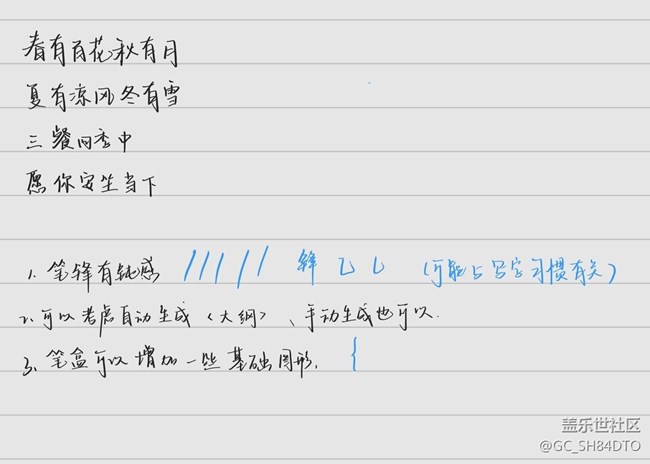 春有百花秋有月
夏有凉风冬有雪
三餐四季中
愿你安生当下
1. 笔锋有钝感 ////// 锋 乚 乚 (可能与写字习惯有关)
2. 可以考虑自动生成〈大纲〉、手动生成也可以.
3. 笔盒可以增加一些基础图形. {
盖乐世社区
@GC_SH84DTO